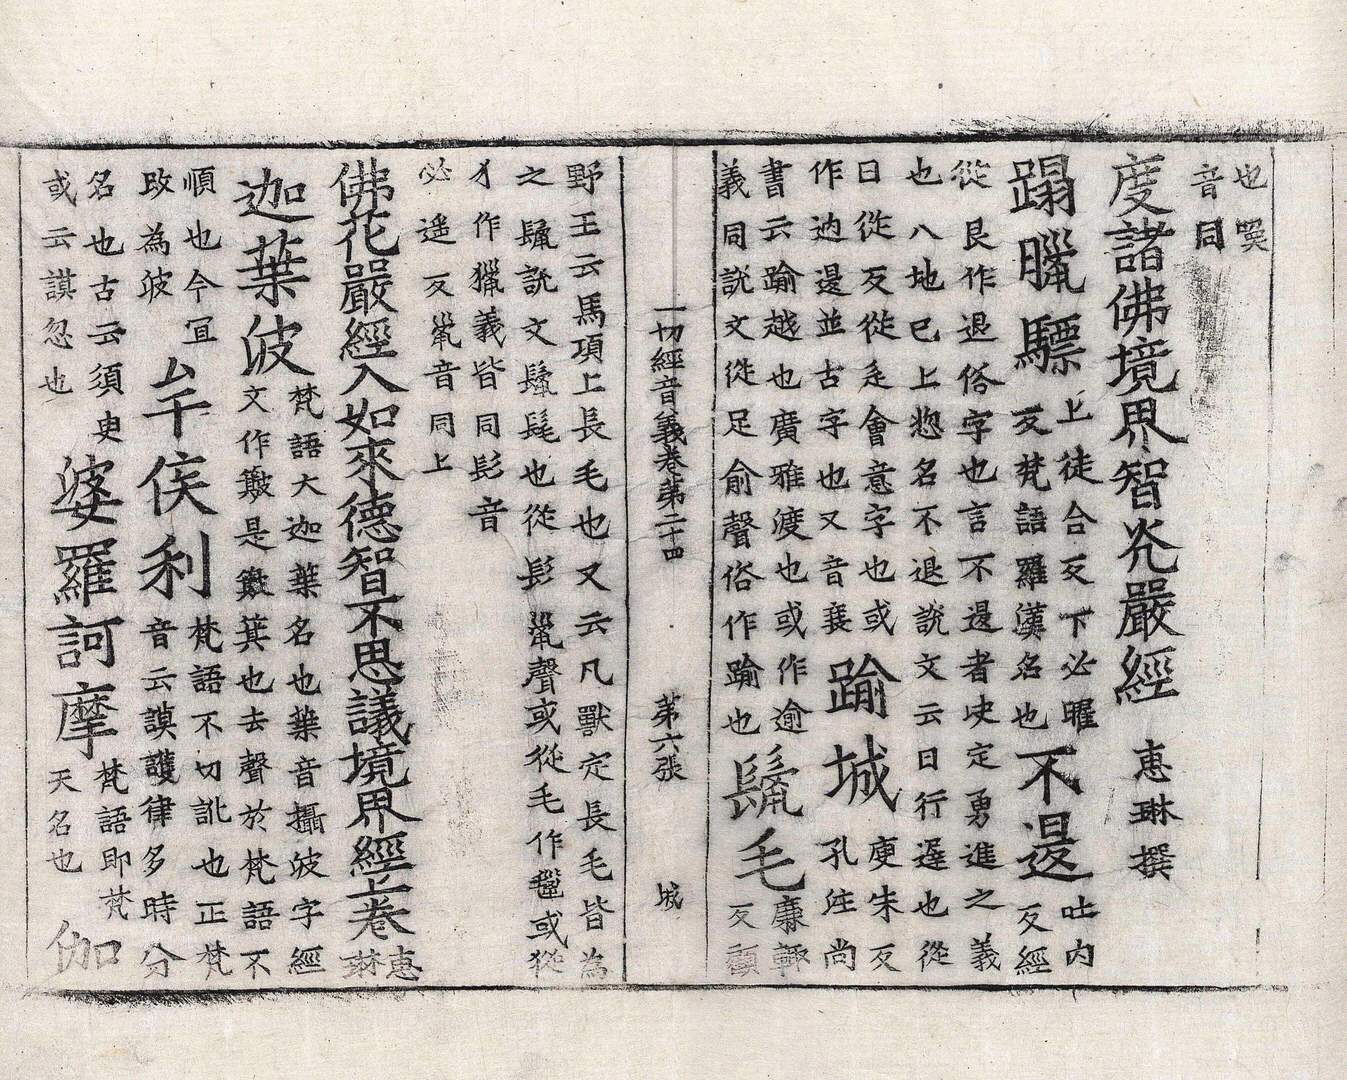 也㗛
音同
度諸佛境界智光嚴經　惠琳撰
蹋臘驃上徒合反下必曜
反梵語羅漢名也不退吐内
反經
從艮作退俗字也言不退者史定勇進之義
也八地已上惣名不退說文云日行遲也從
日從反從辵會意字也或
作迌退並古字也又音衰踰城庾朱反
孔注尚
書云踰越也廣雅渡也或作逾
義同說文從足俞聲俗作踰也鬣毛廉輒
反顧
一切經音義卷第二十四　第六張　城
野王云馬項上長毛也又云凡獸定長毛皆為
之鬣說文鬣髦也從髟巤聲或從毛作氎或從
犭作獵義皆同髟音
必遥反巤音同上
佛花嚴經入如來德智不思議境界經上卷惠
琳
迦葉波梵語大迦葉名也葉音攝波字經
文作簸是簸箕也去聲於梵語不
順也今冝
改為波牟侯利梵語不切訛也正梵
音云謨護律多時分
名也古云須史
或云謨忽也婆羅訶摩梵語即梵
天名也伽